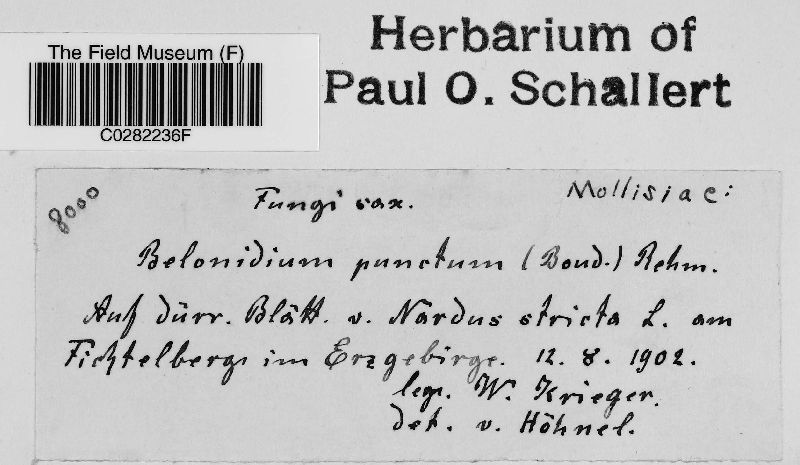 Herbarium of
Paul O. Schallert
The Field Museum (F)
C0282236F
8000
Fungi sax.
Mollisiae:
Belonidium punctum (Boud.) Rehm.
Auf dürr. Blätt. v. Nardus stricta L. am
Fichtelberg im Erzgebirge. 12. 8. 1902.
leg. W. Krieger.
det. v. Höhnel.